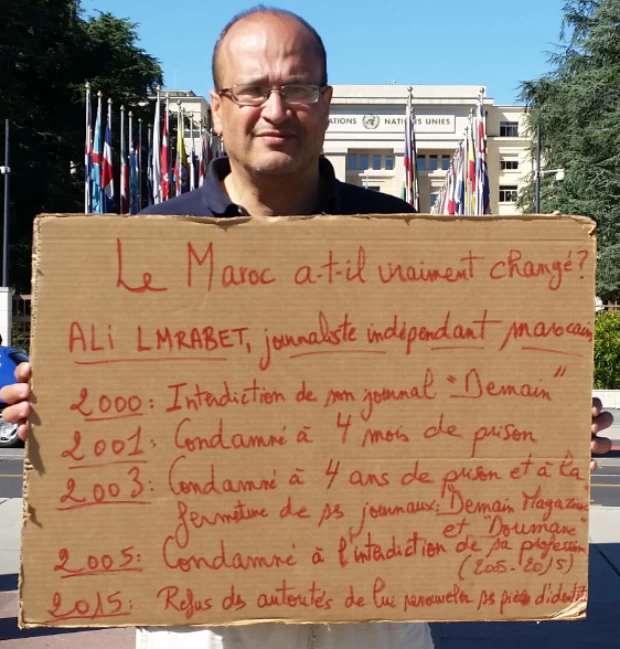 NATIONS UNIES
Le Maroc a-t-il vraiment changé?
ALI LMRABET, journaliste indépendant marocain
2000: Interdiction de son journal "Demain"
2001: Condamné à 4 mois de prison
2003: Condamné à 4 ans de prison et à la
fermeture de ses journaux: "Demain Magazine"
et "Doumane"
2005: Condamné à l'interdiction de sa profession
(2005-2015)
2015: Refus des autorités de lui renouveler ses pièces d'identité